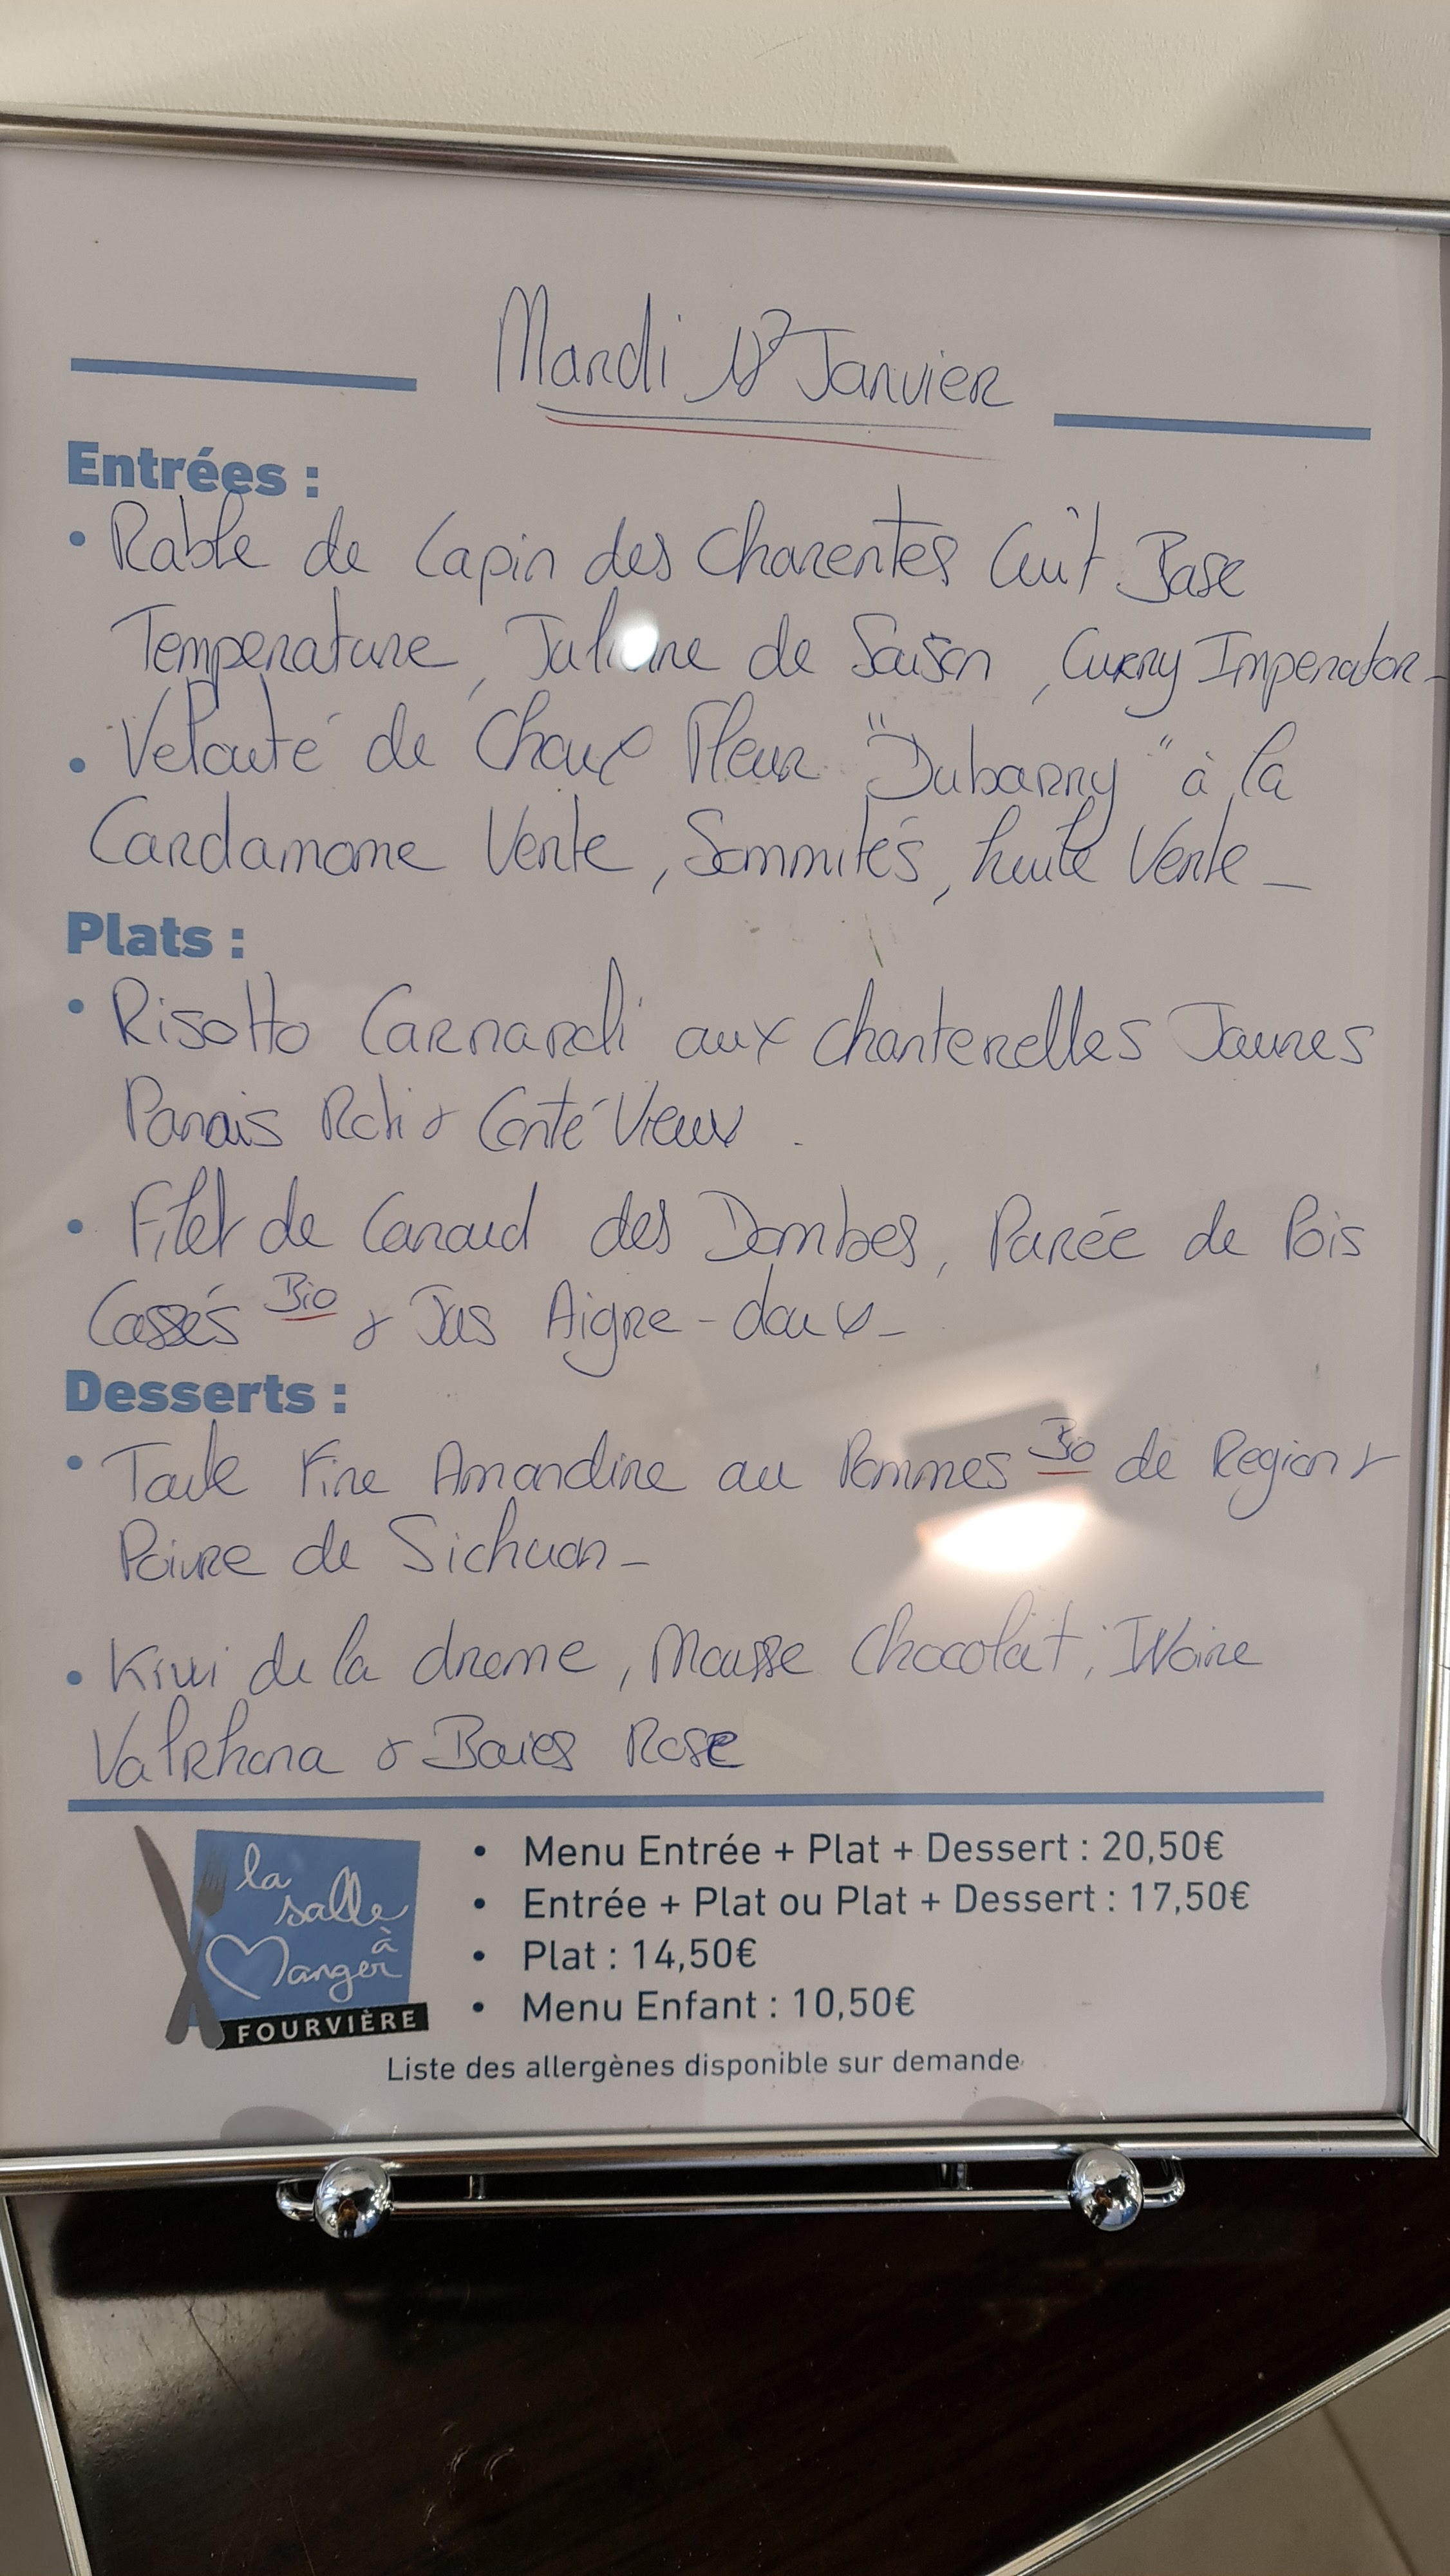 Mardi Janvier
Entrées :
• Rable de Lapin des Charentes Cuît Base
Temperature, Julienne de Saison, Curry Imperator_
• Velouté de Choux Fleur "Dubarry" à la
Cardamome Verte, Sommités, huile Verte_
Plats :
• Risotto Carnaroli aux chanterelles Jaunes
Panais Roti & Comté Vieux.
• Filet de Canard des Dombes, Purée de Pois
Cassés Bio & Jus Aigre-doux_
Desserts :
• Tarte Fine Amandine au Pommes Bio de Region &
Poivre de Sichuan_
• Kiwi de la drome, Mousse Chocolat, Ivoire
Valrhona & Baies Rose
la
salle
à
Manger
FOURVIÈRE
• Menu Entrée + Plat + Dessert : 20,50€
• Entrée + Plat ou Plat + Dessert : 17,50€
• Plat : 14,50€
• Menu Enfant : 10,50€
Liste des allergènes disponible sur demande